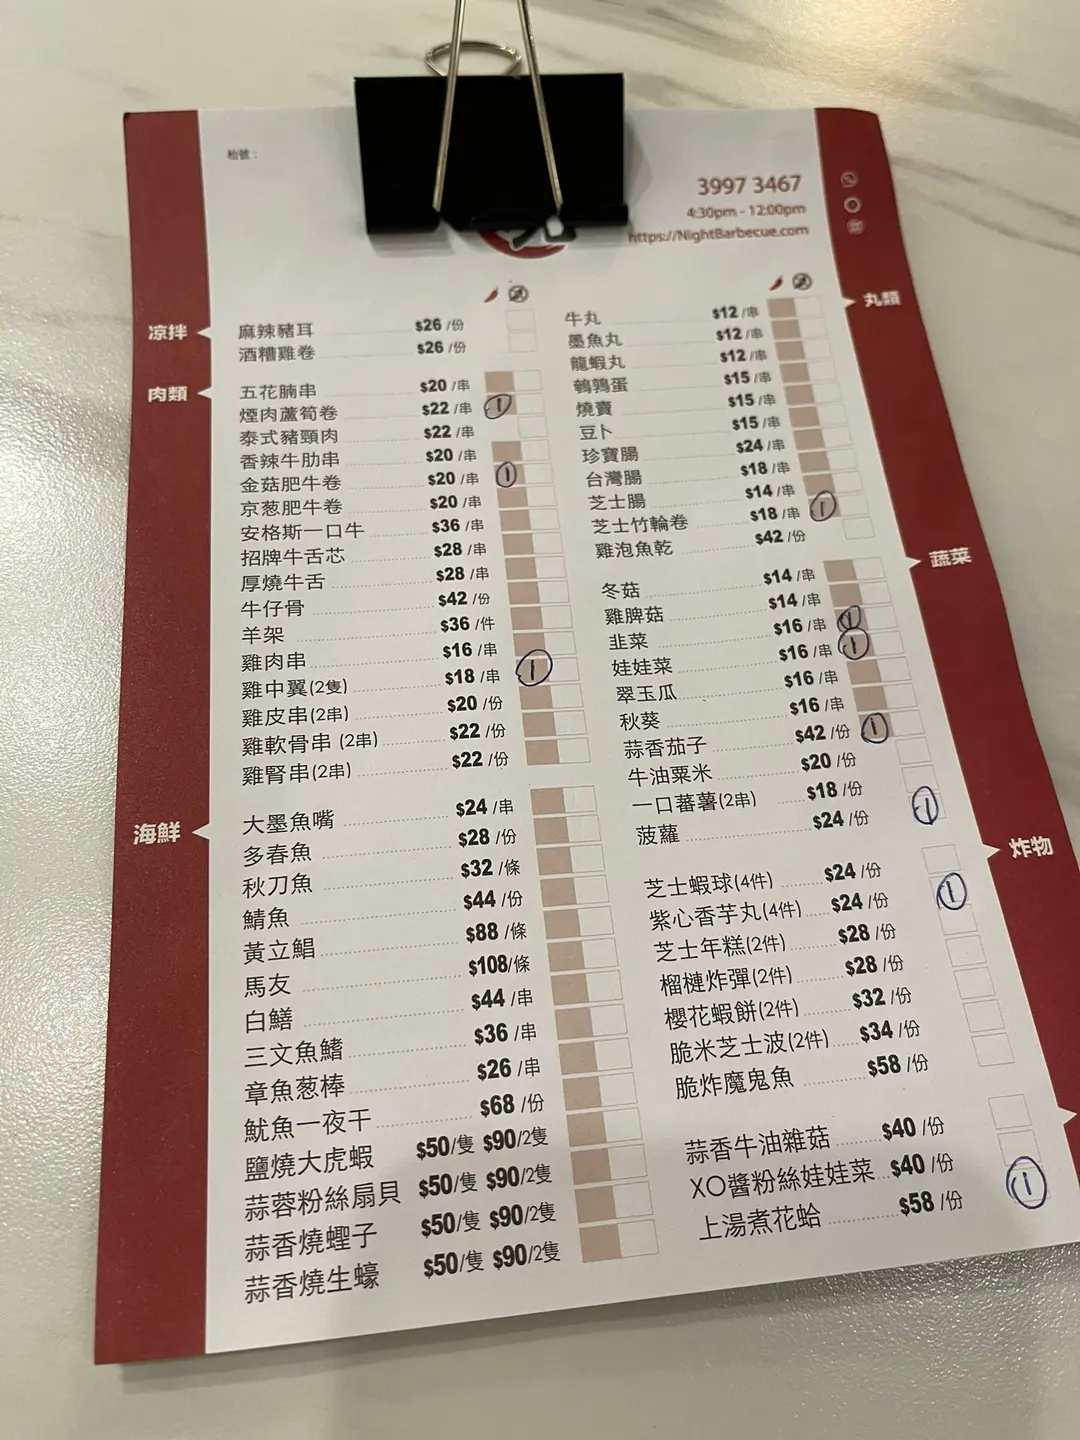 枱號：
3997 3467
4:30pm - 12:00pm
https://NightBarbecue.com
凉拌
麻辣豬耳 $26 /份
酒糟雞卷 $26 /份
肉類
五花腩串 $20 /串
煙肉蘆筍卷 $22 /串 1
泰式豬頸肉 $22 /串
香辣牛肋串 $20 /串
金菇肥牛卷 $20 /串 1
京葱肥牛卷 $20 /串
安格斯一口牛 $36 /串
招牌牛舌芯 $28 /串
厚燒牛舌 $28 /串
牛仔骨 $42 /份
羊架 $36 /件
雞肉串 $16 /串
雞中翼(2隻) $18 /串 1
雞皮串(2串) $20 /份
雞軟骨串 (2串) $22 /份
雞腎串(2串) $22 /份
海鮮
大墨魚嘴 $24 /串
多春魚 $28 /份
秋刀魚 $32 /條
鯖魚 $44 /份
黃立鯧 $88 /條
馬友 $108/條
白鱔 $44 /串
三文魚鰭 $36 /串
章魚葱棒 $26 /串
魷魚一夜干 $68 /份
鹽燒大虎蝦 $50/隻 $90/2隻
蒜蓉粉絲扇貝 $50/隻 $90/2隻
蒜香燒蟶子 $50/隻 $90/2隻
蒜香燒生蠔 $50/隻 $90/2隻
丸類
牛丸 $12 /串
墨魚丸 $12 /串
龍蝦丸 $12 /串
鵪鶉蛋 $15 /串
燒賣 $15 /串
豆卜 $15 /串
珍寶腸 $24 /串
台灣腸 $18 /串
芝士腸 $14 /串
芝士竹輪卷 $18 /串 1
雞泡魚乾 $42 /份
蔬菜
冬菇 $14 /串
雞脾菇 $14 /串
韭菜 $16 /串 1
娃娃菜 $16 /串 1
翠玉瓜 $16 /串
秋葵 $16 /串
蒜香茄子 $42 /份 1
牛油粟米 $20 /份
一口蕃薯(2串) $18 /份
菠蘿 $24 /份 1
炸物
芝士蝦球(4件) $24 /份
紫心香芋丸(4件) $24 /份 1
芝士年糕(2件) $28 /份
榴槤炸彈(2件) $28 /份
櫻花蝦餅(2件) $32 /份
脆米芝士波(2件) $34 /份
脆炸魔鬼魚 $58 /份
蒜香牛油雜菇 $40 /份
XO醬粉絲娃娃菜 $40 /份
上湯煮花蛤 $58 /份 1